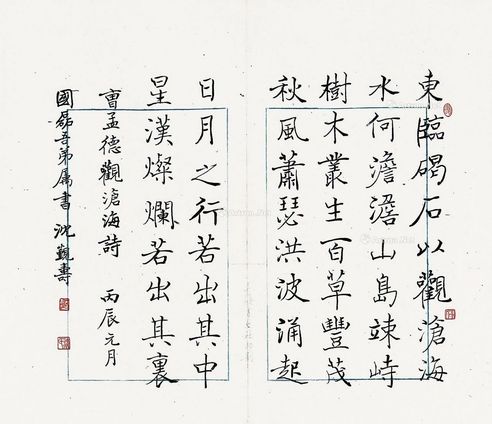 東臨碣石以觀滄海
水何澹澹山島竦峙
樹木叢生百草豐茂
秋風蕭瑟洪波涌起
日月之行若出其中
星漢燦爛若出其裏
曹孟德觀滄海詩 丙辰元月
國磊吾弟屬書 沈覲壽